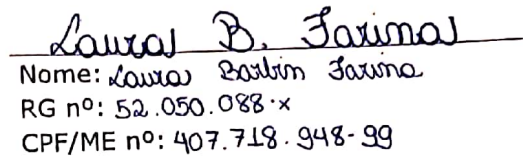 Laura B. Farina
Nome: Laura Barbin Farina
RG nº: 52.050.088-x
CPF/ME nº: 407.718.948-99